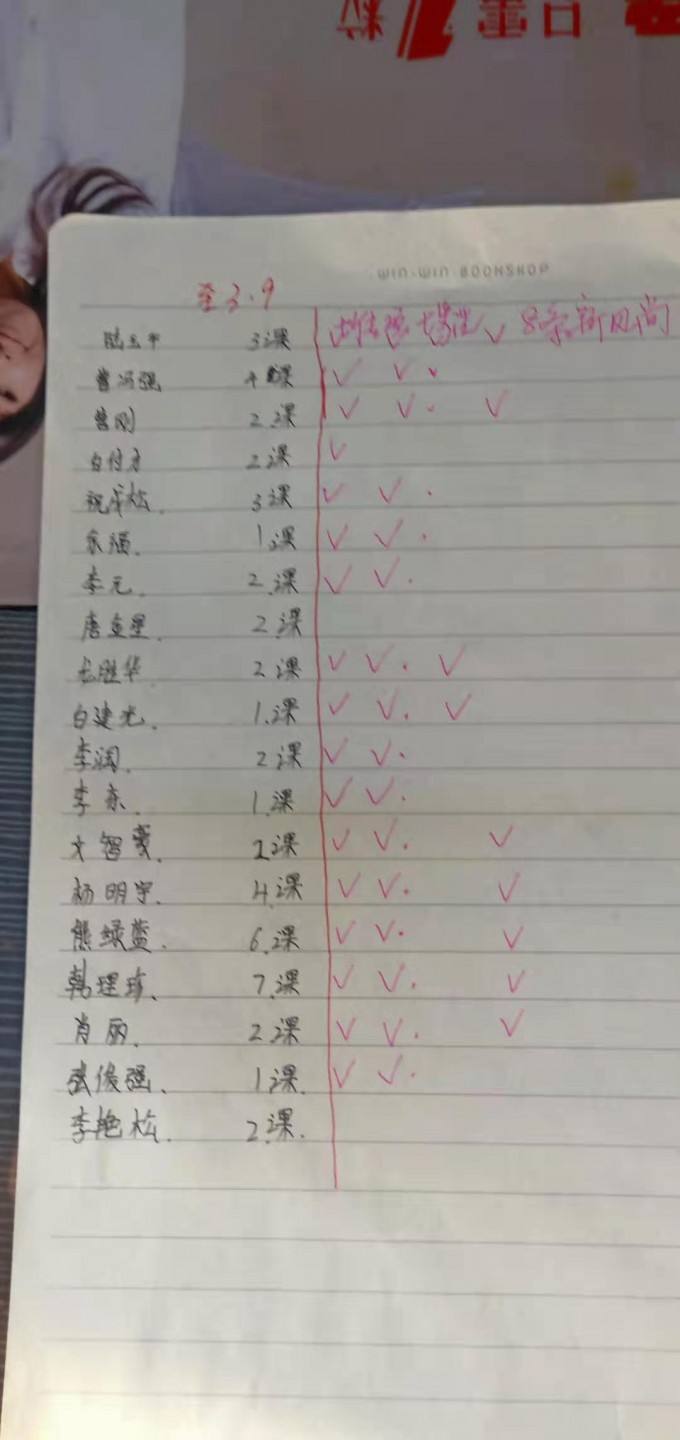 日需1粒
WIN-WIN BOOKSHOP
至3.9
3课 8条新风尚
曾冯强 4课 √ √
曾刚 2课 √ √ √
白付方 2课 √
祝成松. 3课 √ √
余强. 1课 √ √
李元. 2课 √ √
唐星. 2课
龙胜华 2课 √ √ √
白建光. 1课 √ √ √
李润. 2课 √ √
李东. 1课 √ √
文智蒙. 2课 √ √ √
杨明宇. 4课 √ √ √
熊绿蓝. 6课 √ √ √
韩理珍. 7课 √ √ √
肖丽. 2课 √ √ √
张俊强. 1课. √ √
李艳松. 2课.